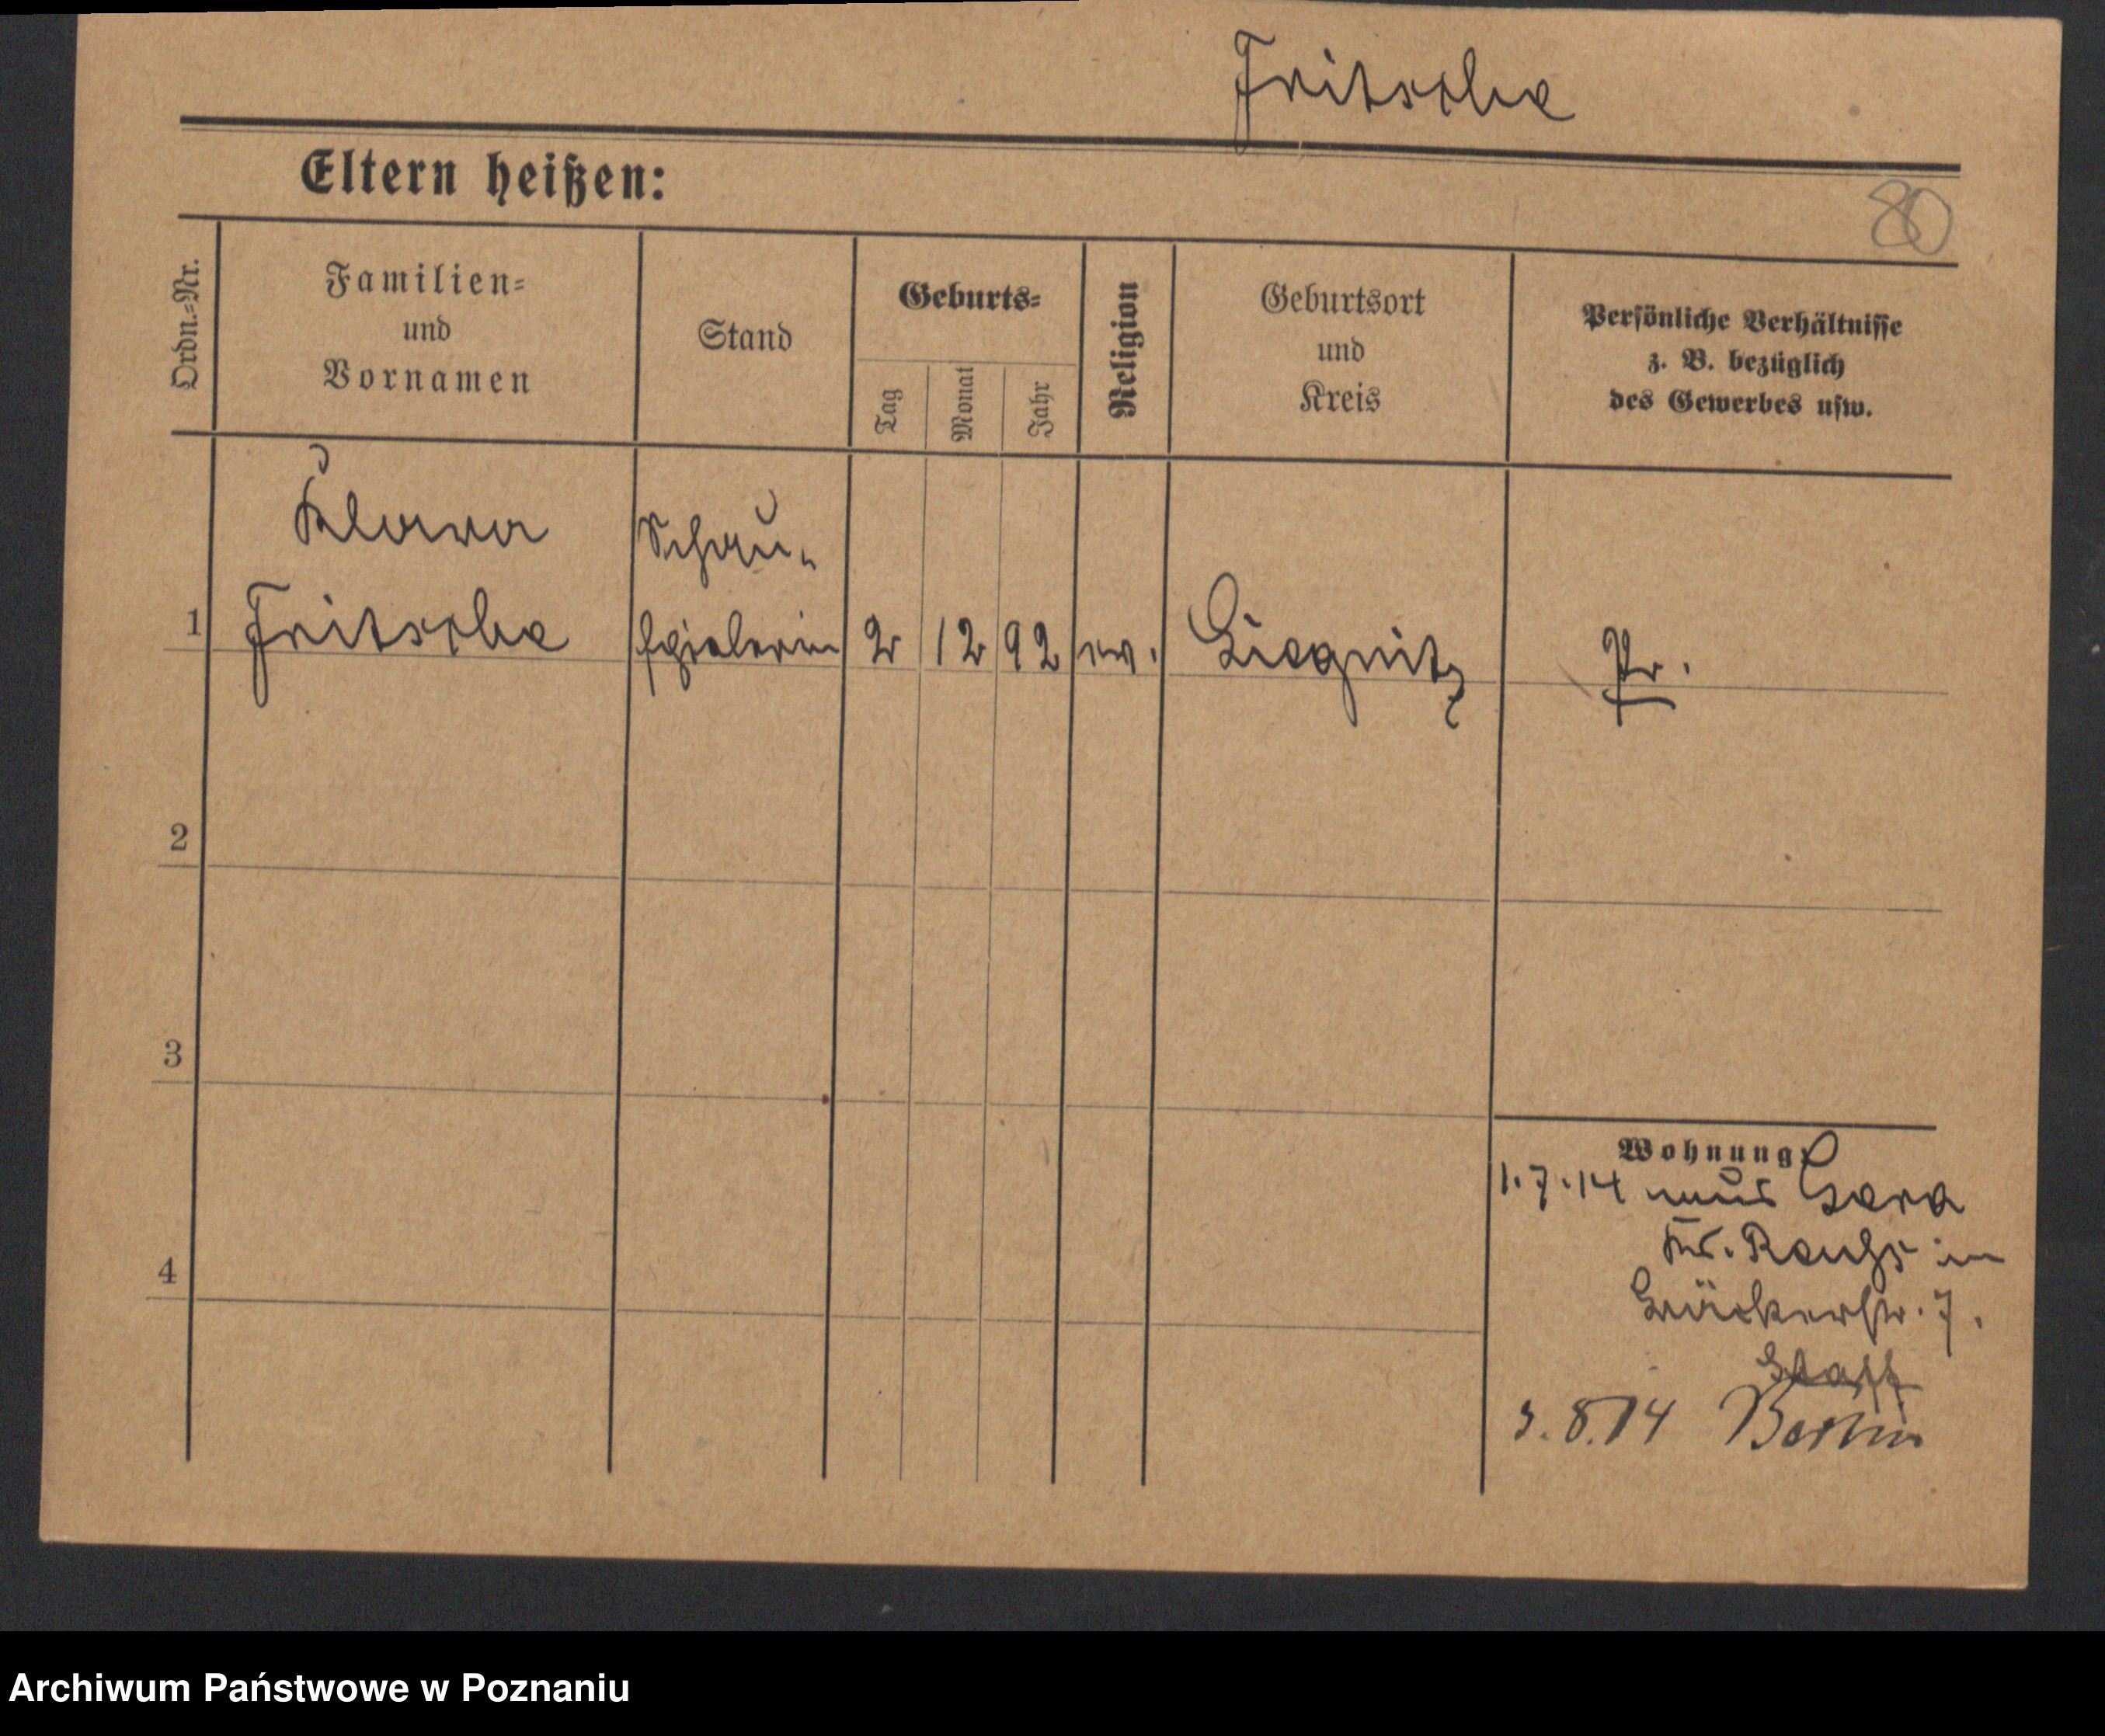 Fritsche
Eltern heißen:
80
Ordn.=Nr.
Familien=
und
Vornamen
Stand
Geburts=
Tag
Monat
Jahr
Religion
Geburtsort
und
Kreis
Persönliche Verhältnisse
z. B. bezüglich
des Gewerbes usw.
Klara
Fritsche
Schau-
spielerin
1
2
12
92
ev.
Liegnitz
Pr.
2
3
4
Wohnung:
1.7.14 aus Gera
Kr. Reuß in
Bäckerstr. 7.
3.8.14 Berlin
Archiwum Państwowe w Poznaniu